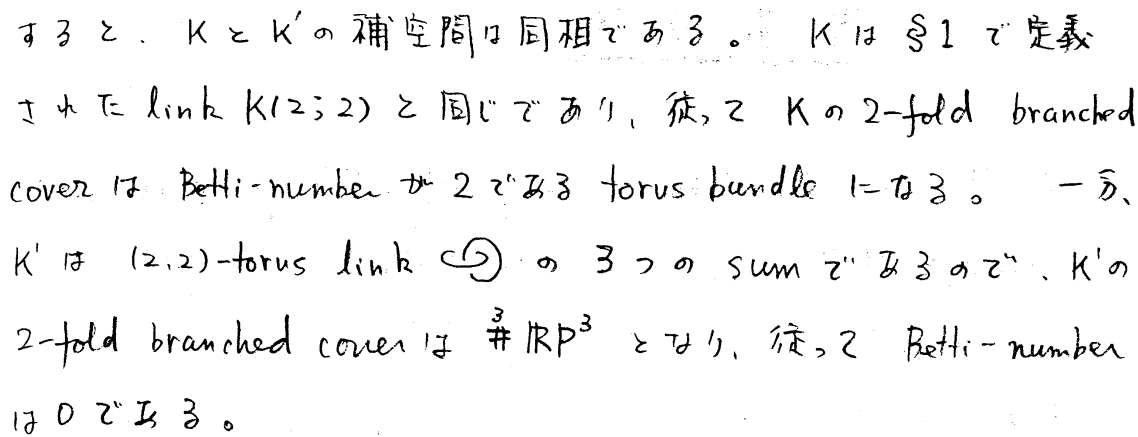 すると、KとK'の補空間は同相である。 Kは§1で定義
された link K(2;2) と同じであり、従って Kの 2-fold branched
cover は Betti-number が 2である torus bundle になる。 一方、
K' は (2,2)-torus link の 3つの sum であるので、K'の
2-fold branched cover は #³ RP³ となり、従って Betti-number
は 0 である。